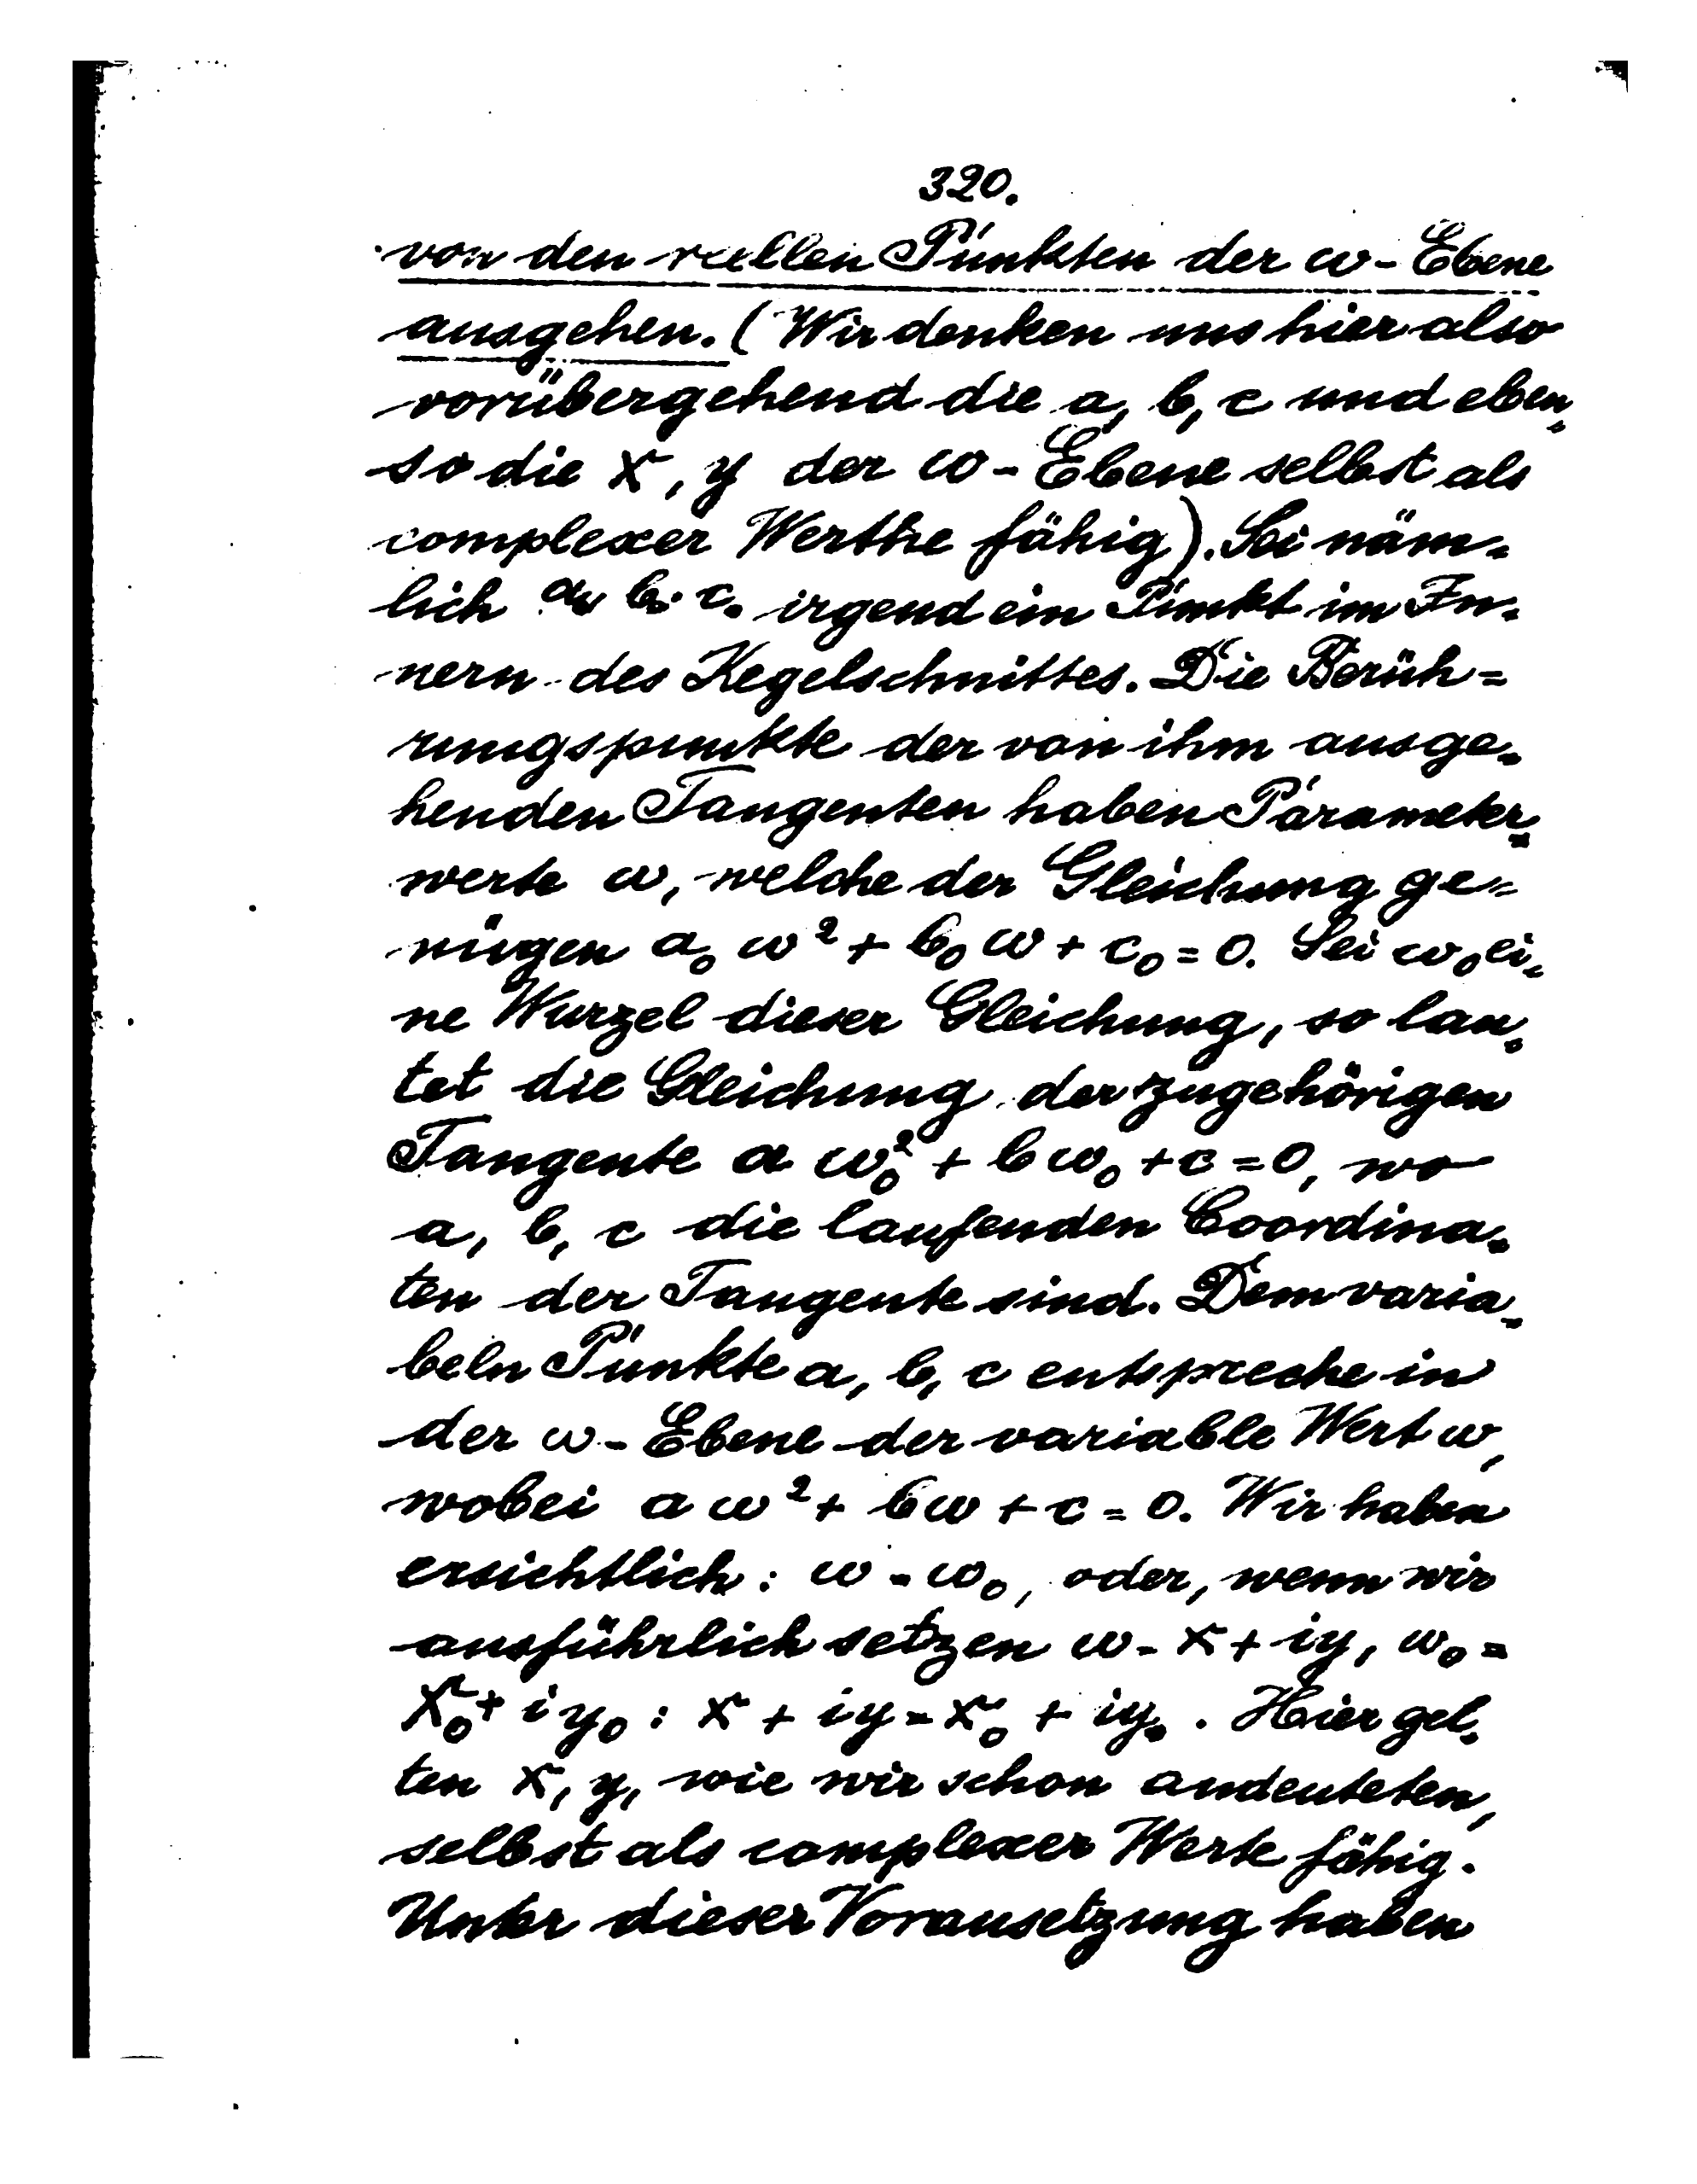 320.
von den reellen Punkten der ω-Ebene
ausgehen. (Wir denken uns hier also
vorübergehend die a, b, c und eben-
so die x, y der ω-Ebene selbst als
complexer Werthe fähig). Sei näm-
lich a₀ b₀ c₀ irgend ein Punkt im In-
nern des Kegelschnittes. Die Berüh=
rungspunkte der von ihm ausge-
henden Tangenten haben Parameter-
werte ω, welche der Gleichung ge=
nügen a₀ ω² + b₀ ω + c₀ = 0. Sei ω₀ ei-
ne Wurzel dieser Gleichung, so lau-
tet die Gleichung der zugehörigen
Tangente a ω₀² + b ω₀ + c = 0, wo
a, b, c die laufenden Coordina-
ten der Tangente sind. Dem varia-
beln Punkte a, b, c entspreche in
der ω-Ebene der variable Wert ω,
wobei a ω² + b ω + c = 0. Wir haben
ersichtlich: ω = ω₀, oder, wenn wir
ausführlich setzen ω = x + iy, ω₀ =
x₀ + i y₀ : x + iy = x₀ + iy₀. Hier gel-
ten x, y, wie wir schon andeuteten,
selbst als complexer Werte fähig.
Unter dieser Voraussetzung haben